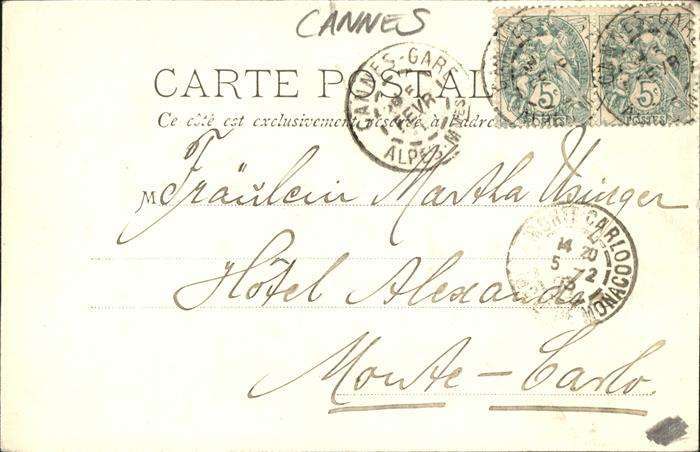 CANNES
CARTE POSTALE
Ce côté est exclusivement réservé à l'adresse
CANNES-GARE
FEVR
ALPES Mmes
5c
5c
POSTES
M Fräulein Martha Usinger
MONTE CARLO
14 20
5 -2
MONACO
Hôtel Alexandra
Monte-Carlo.